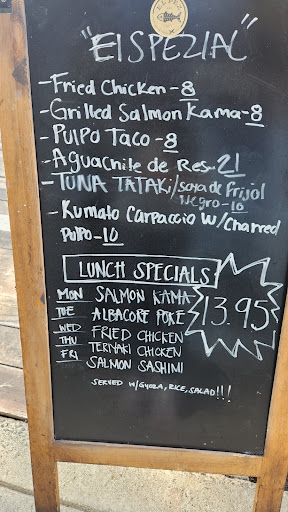 "El SPEZIAL"
- Fried Chicken - 8
- Grilled Salmon Kama - 8
- PULPO Taco - 8
- Aguachile de Res - 21
- TUNA TATAKI/soya de Frijol
Negro - 10
- Kumato Carpaccio W/Charred
Pulpo - 10
LUNCH SPECIALS
13.95
MON SALMON KAMA
TUE ALBACORE POKE
WED FRIED CHICKEN
THU TERIYAKI CHICKEN
FRI SALMON SASHIMI
SERVED W/GYOZA, RICE, SALAD!!!